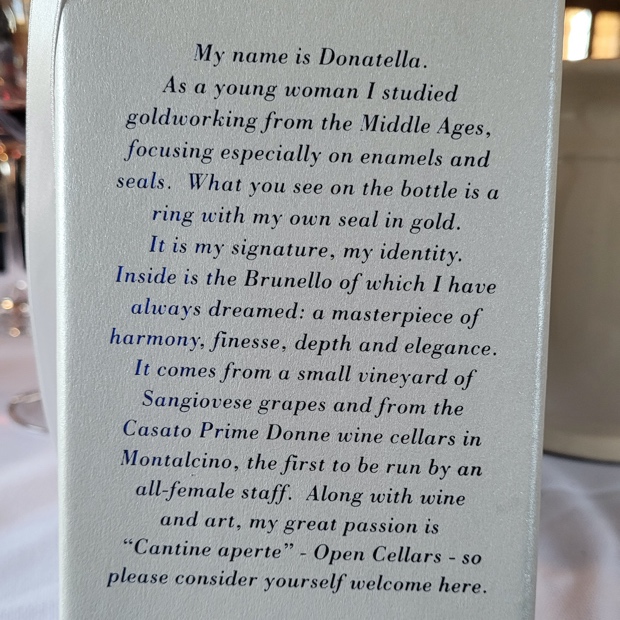 My name is Donatella.
As a young woman I studied
goldworking from the Middle Ages,
focusing especially on enamels and
seals. What you see on the bottle is a
ring with my own seal in gold.
It is my signature, my identity.
Inside is the Brunello of which I have
always dreamed: a masterpiece of
harmony, finesse, depth and elegance.
It comes from a small vineyard of
Sangiovese grapes and from the
Casato Prime Donne wine cellars in
Montalcino, the first to be run by an
all-female staff. Along with wine
and art, my great passion is
“Cantine aperte” - Open Cellars - so
please consider yourself welcome here.